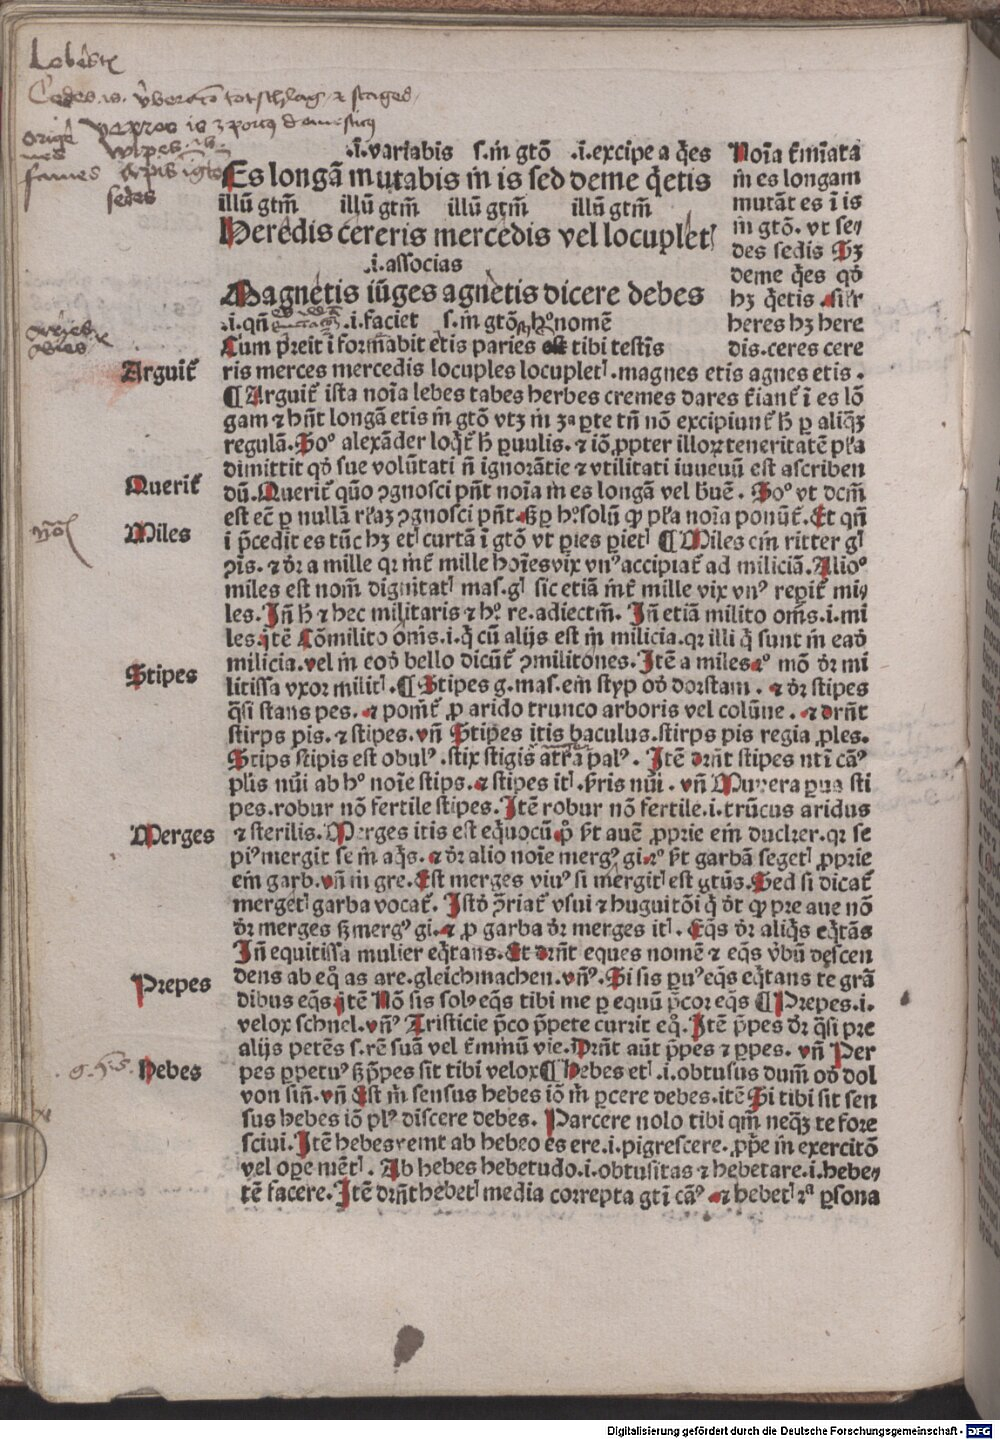 Cedes .is. totschlag ⁊ stages
sedes
.i. variabis s. in gtō .i. excipe a q̄es
Es longā mutabis in is sed deme q̄etis
illū gtm̄ illū gtm̄ illū gtm̄ illū gtm̄
Heredis cereris mercedis vel locupletꝭ
.i. associas
Magnetis iūges agnetis dicere debes
.i. qn̄ .i. faciet s. in gtō nomē
Cum p̄reit i formabit etis paries tibi testis
Noīa t̄mīata
in es longam
mutāt es ī is
in gtō. vt se⸗
des sedis Hꝫ
deme q̄es qd̓
hꝫ q̄etis. silr̄
heres hꝫ here
dis. ceres cere
Arguit̄
ris merces mercedis locuples locupletꝭ. magnes etis agnes etis.
¶ Arguit̄ ista noīa lebes tabes herbes cremes dares t̄iant̄ ī es lō
gam ⁊ hn̄t longā etis in gtō vtꝫ in ꝫª ꝑte tn̄ nō excipiunt̄ h̄ ꝑ aliq̄ꝫ
regulā. So° alexāder loq̄t̄ h̄ ꝑuulis. ⁊ iō ꝓpter illoꝝ teneritatē pl̄a
dimittit qd̓ sue volūtati n̄ ignorātie ⁊ vtilitati iuuenū est ascriben
Querit̄
dū. Querit̄ quō ꝯgnosci pn̄t noīa in es longā vel b̄uē. So° vt dcm̄
est ec̄ ꝑ nullā ꝯgnosci pn̄t. ꝑ h° solū ꝙ pl̄a noīa ponūt̄. Et qn̄
Miles
i p̄cedit es tūc hꝫ etꝭ curtā ī gtō vt ꝑies ꝑietꝭ ¶ Miles em̄ ritter gꝭ
ꝯis. ⁊ dr̄ a mille qr in̄t mille hoīes vix vnꝰ accipiat̄ ad miliciā. Alio°
miles est nom̄ dignitatꝭ mas. gꝭ sic etiā in̄t mille vix vnꝰ reꝑit̄ mi⸗
les. Jn̄ h̄ ⁊ hec militaris ⁊ h° re. adiectm̄. Jn̄ etiā milito om̄s. i. mi
les. itē Cōmilito om̄s. i. q̄ cū alijs est in milicia. qr illi q̄ sunt in eadꝫ
milicia. vel in eodꝫ bello dicūt̄ ꝯmilitones. Jtē a miles mō dr̄ mi
Stipes
litissa vxor militꝭ. ¶ Stipes g. mas. em̄ styp od̓ dorstam. ⁊ dr̄ stipes
q̄si stans pes. ⁊ pom̄t̄ ꝓ arido trunco arboris vel colūne. ⁊ drn̄t
stirps pis. ⁊ stipes. vn̄ Stipes itis baculus. stirps pis regia ꝓles.
Stips stipis est obulꝰ. stix stigis atra palꝰ. Jtē drn̄t stipes nti cāꝰ
plis nūi ab h° noīe stips. ⁊ stipes itꝭ. p̄ris nūi. vn̄ Munera ꝑua sti
pes. robur nō fertile stipes. Jtē robur nō fertile. i. trūcus aridus
Merges
⁊ sterilis. Merges itis est eq̄uocū. p° s̄t auē ꝓprie em̄ duckrer. qr se
piꝰ mergit se in aq̄s. ⁊ dr̄ alio noīe mergꝰ gi. s̄t garbā segetꝭ ꝓprie
em̄ garb. vn̄ in gre. Est merges viuꝰ si mergitꝭ est gtūs. Sed si dicat̄
mergetꝭ garba vocat̄. Jstd̓ ꝯriat̄ vsui ⁊ huguitōi q̄ dt̄ ꝙ pre aue nō
dr̄ merges sꝫ mergꝰ gi. ⁊ ꝓ garba dr̄ merges itꝭ. Eq̄s dr̄ aliq̄s eq̄tās
Jn̄ equitissa mulier eq̄tans. Et drn̄t eques nomē ⁊ eq̄s v̄bū descen
Prepes
dens ab eq̄ as are. gleichmachen. vn̄ꝰ. Si sis ꝑuꝰ eq̄s eq̄tans te grā
dibus eq̄s itē Nō sis solꝰ eq̄s tibi me ꝑ equū p̄cor eq̄s ¶ Prepes. i.
velox schnel. vn̄ꝰ Aristicie p̄co p̄pete currit eq̄. Jtē p̄pes dr̄ q̄si pre
alijs petēs s. rē suā vel t̄minū vie. Drn̄t aūt p̄pes ⁊ ꝑpes. vn̄ Per
Hebes
pes ꝑpetuꝰ sꝫ p̄pes sit tibi velox ¶ Hebes etꝭ. i. obtusus dum̄ od̓ dol
von siñ. vn̄ Est in sensus hebes iō in ꝑcere debes. itē Si tibi sit sen
sus hebes iō plꝰ discere debes. Parcere nolo tibi qm̄ neqꝫ te fore
sciui. Jtē hebes vemt ab hebeo es ere. i. pigrescere. ꝓp̄e in exercitō
vel oꝑe mētꝭ. Ab hebes hebetudo. i. obtusitas ⁊ hebetare. i. hebe⸗
tē facere. Jtē drn̄t hebetꝭ media correpta gti cāꝰ ⁊ hebetꝭ 2ª ꝑsona
Digitalisierung gefördert durch die Deutsche Forschungsgemeinschaft - DFG